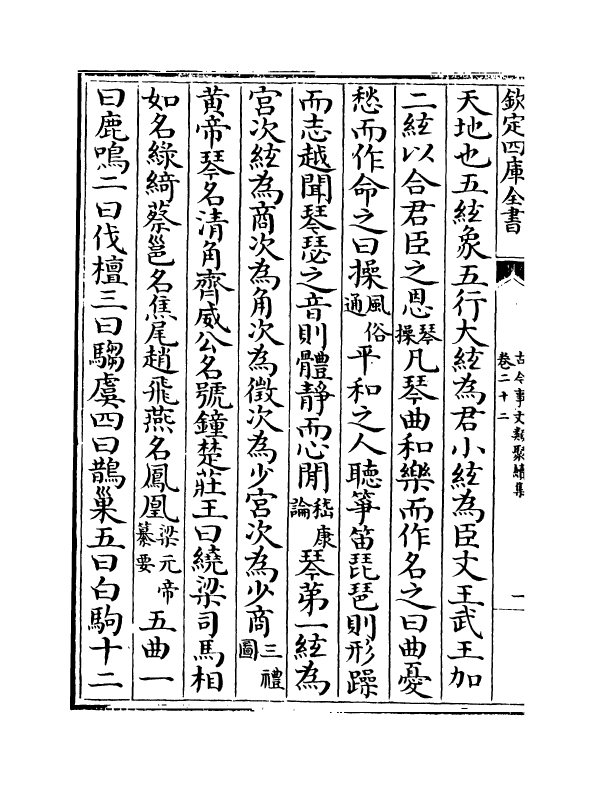 欽定四庫全書
古今事文類聚續集
卷二十二
一
天地也五絃象五行大絃為君小絃為臣文王武王加
二絃以合君臣之恩琴操凡琴曲和樂而作名之曰曲憂
愁而作命之曰操風俗通平和之人聽箏笛琵琶則形躁
而志越聞琴瑟之音則體靜而心閒嵇康論琴第一絃為
宮次絃為商次為角次為徵次為少宮次為少商三禮圖
黃帝琴名清角齊威公名號鐘楚莊王曰繞梁司馬相
如名綠綺蔡邕名焦尾趙飛燕名鳳凰梁元帝纂要五曲一
曰鹿鳴二曰伐檀三曰騶虞四曰鵲巢五曰白駒十二